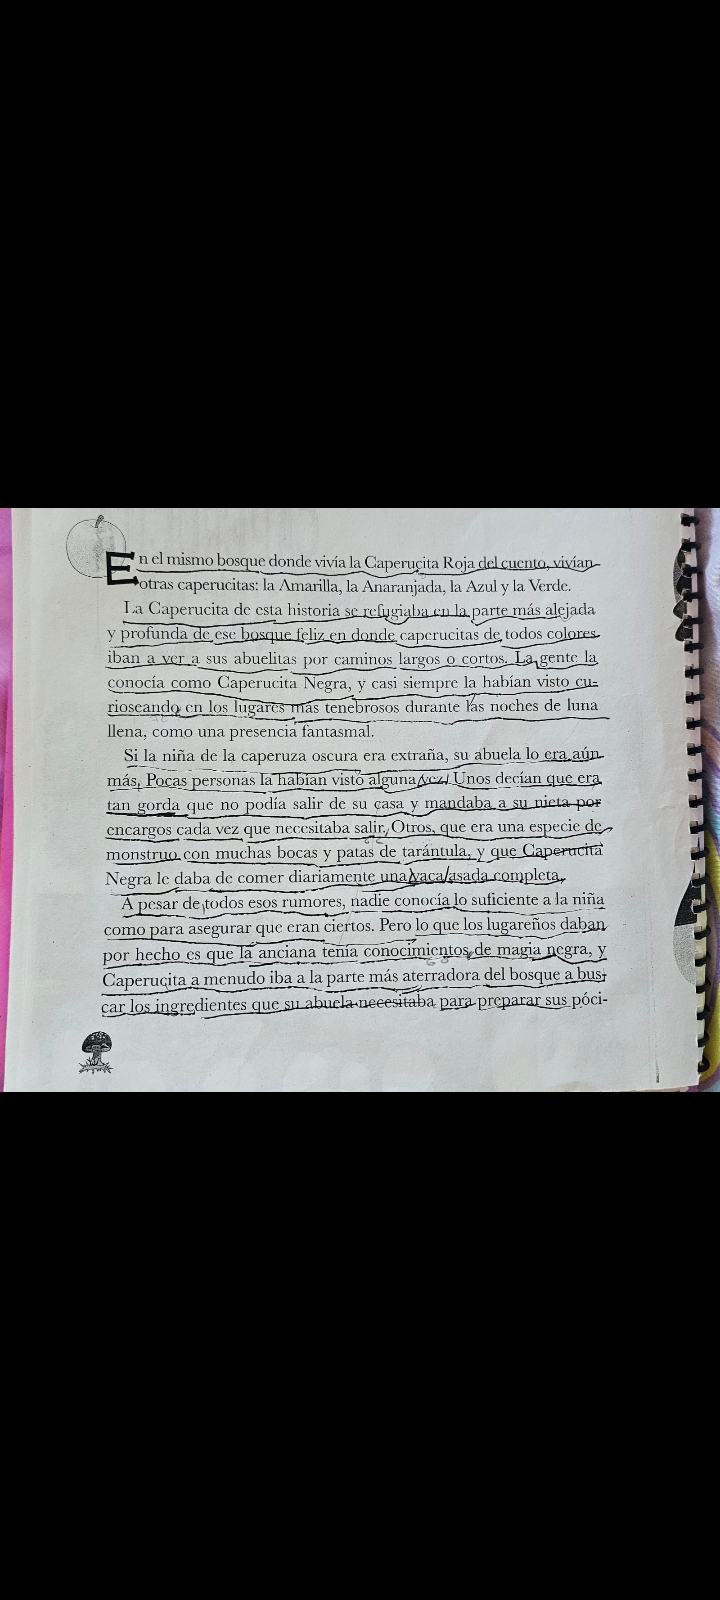 En el mismo bosque donde vivía la Caperucita Roja del cuento, vivían
otras caperucitas: la Amarilla, la Anaranjada, la Azul y la Verde.
La Caperucita de esta historia se refugiaba en la parte más alejada
y profunda de ese bosque feliz en donde caperucitas de todos colores
iban a ver a sus abuelitas por caminos largos o cortos. La gente la
conocía como Caperucita Negra, y casi siempre la habían visto cu-
rioseando en los lugares más tenebrosos durante las noches de luna
llena, como una presencia fantasmal.
Si la niña de la caperuza oscura era extraña, su abuela lo era aún
más. Pocas personas la habían visto alguna vez. Unos decían que era
tan gorda que no podía salir de su casa y mandaba a su nieta por
encargos cada vez que necesitaba salir. Otros, que era una especie de
monstruo con muchas bocas y patas de tarántula, y que Caperucita
Negra le daba de comer diariamente una vaca asada completa.
A pesar de todos esos rumores, nadie conocía lo suficiente a la niña
como para asegurar que eran ciertos. Pero lo que los lugareños daban
por hecho es que la anciana tenía conocimientos de magia negra, y
Caperucita a menudo iba a la parte más aterradora del bosque a bus-
car los ingredientes que su abuela necesitaba para preparar sus póci-